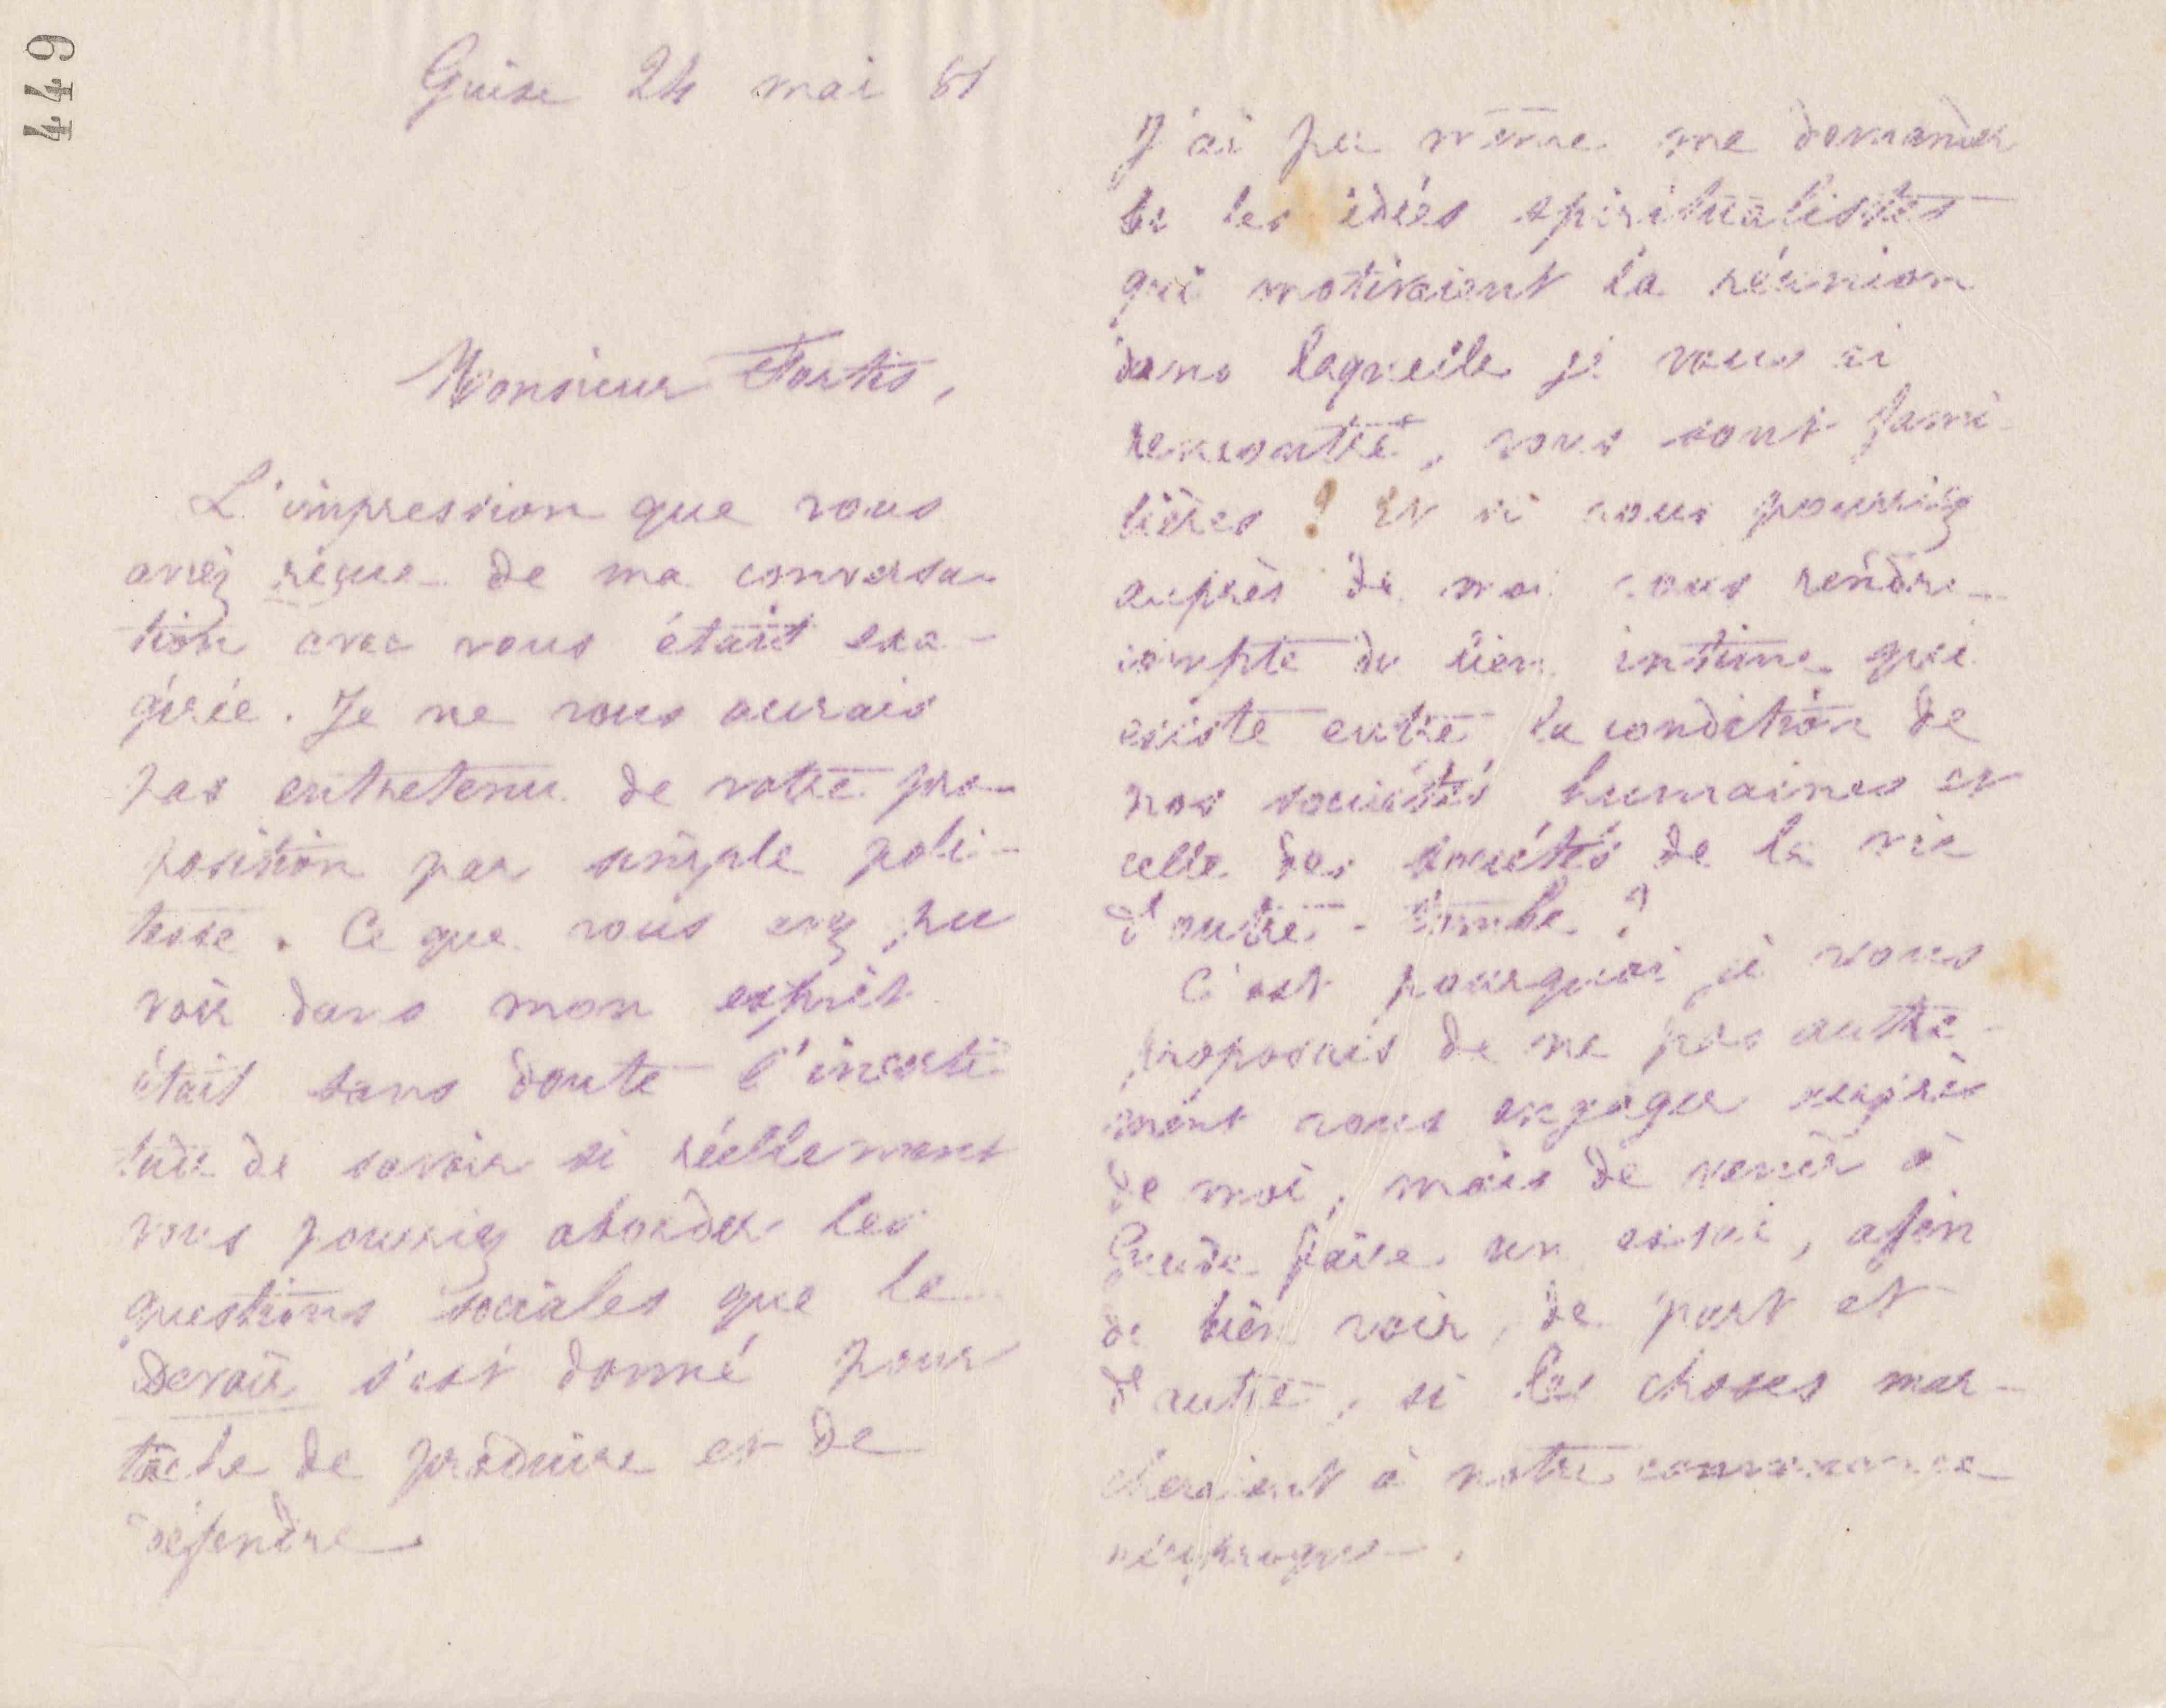 449
Guise 24 mai 81
Monsieur Fortis,
L'impression que vous
avez reçue de ma conversa-
tion avec vous était exa-
gérée. Je ne vous aurais
pas entretenu de votre pro-
position par simple poli-
tesse. Ce que vous avez pu
voir dans mon esprit
était sans doute l'incerti-
tude de savoir si réellement
vous pourriez aborder les
questions sociales que le
Devoir s'est donné pour
tâche de produire et de
défendre
J'ai pu même me demander
si les idées spiritualistes
qui motivaient la réunion
dans laquelle je vous ai
rencontré, vous sont fami-
lières ? Et si vous pourriez
auprès de moi vous rendre
compte du lien intime qui
existe entre la condition de
nos sociétés humaines et
celle des sociétés de la vie
d'outre-tombe ?
C'est pourquoi je vous
proposais de ne pas autre-
ment vous engager auprès
de moi, mais de venir à
Guise faire un essai, afin
de bien voir, de part et
d'autre, si les choses mar-
cheraient à notre convenance
réciproque.